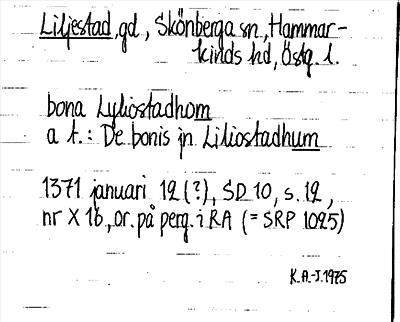 Liljestad, gd, Skönberga sn, Hammar-
kinds hd, Östg. l.
bona Lyliostadhom
a t.: De bonis jn Liliostadhum
1371 januari 12 (?), SD 10, s. 12,
nr X 16, or. på perg. i RA (= SRP 1025)
K.A.-J. 1975